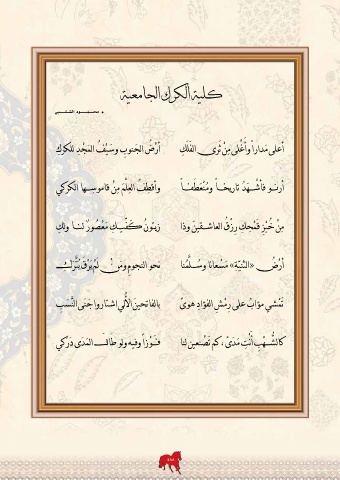 كلية الكرك الجامعية
أعلى مداراً وأغلى مِنْ ثرى الفلكِ أرْضُ الجنوب وسَيْفُ المَجْدِ للكركِ
أرنو فأشْهَدُ تاريخاً ومُنْعَطفاً وأقطِفُ العِلْمَ مِنْ قاموسِها الكركي
مِنْ خُبْزِ قَمْحِكِ رِزْقُ العاشقين وذا زيتونُ كفّيكِ مَعْصُورٌ لنا ولكِ
أرْضُ «الثنيّة» مَسْعانا وسُلَّمُنا نحو النجوم ومَنْ لَمْ يَرْقَ
تَمْشي مؤابُ على رِمْشِ الفؤادِ هوىً بالفاتحين الألى
كالشُّهْبِ أنتِ مَدىً، كم تصْنعين لنا فَوْزاً وفيه ولو طالَ المَدى دَرَكي